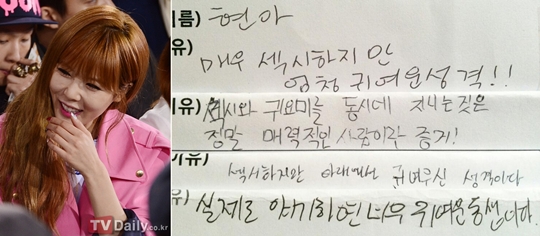 름) 현아
유) 매우 섹시하지만
엄청 귀여운성격!!
이유) 섹시와 귀요미를 동시에 지니는 것은
정말 매력적인 사람이란 증거!
기유) 섹시하지만 아래에선 귀여우신 성격이다
유) 실제로 얘기하면 너무 귀여운동생이다.
TVDaily.co.kr